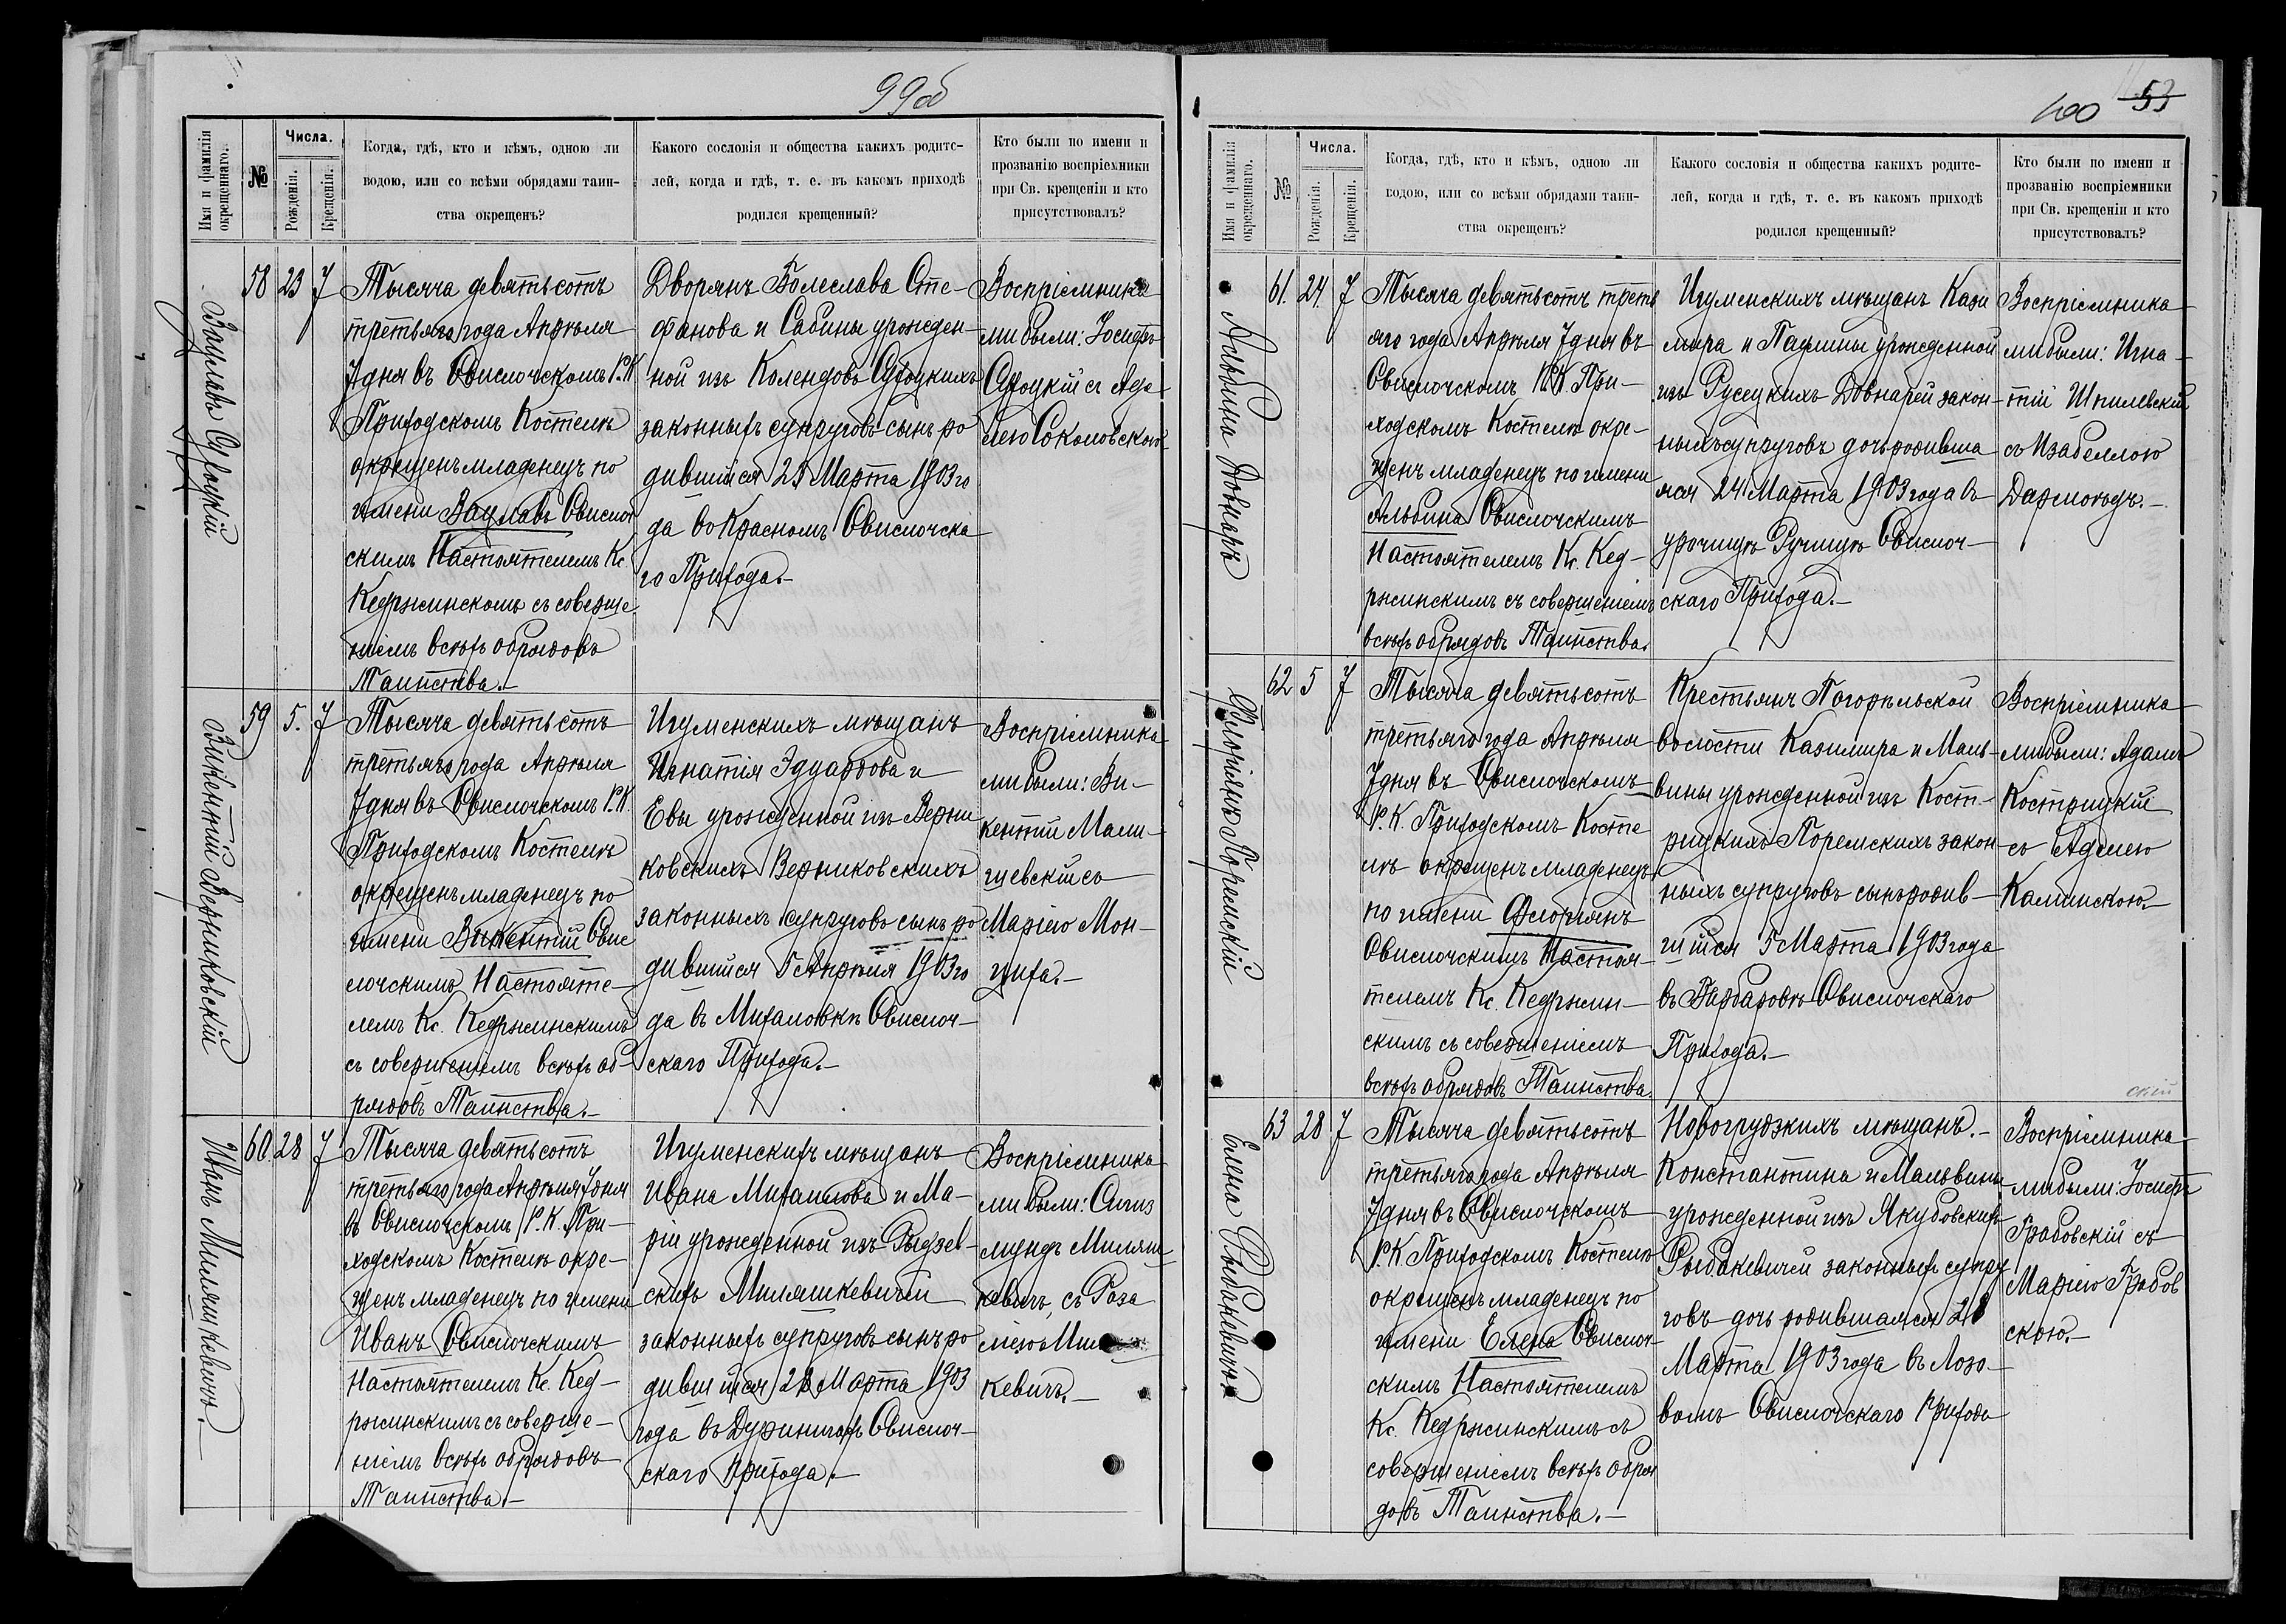 99об
Имя и фамилія окрещеннаго.
№
Числа.
Рожденія.
Крещенія.
Когда, гдѣ, кто и кѣмъ, одною ли
водою, или со всѣми обрядами таин-
ства окрещенъ?
Какого сословія и общества какихъ родите-
лей, когда и гдѣ, т. е. въ какомъ приходѣ
родился крещенный?
Кто были по имени и
прозванію воспріемники
при Св. крещеніи и кто
присутствовалъ?
Вацлавъ
58
23
7
Тысяча девятьсотъ
третьяго года Апрѣля
7 дня въ Свислочскомъ Р.К.
Приходскомъ Костелѣ
окрещенъ младенецъ по
имени Вацлавъ Свислоч
скимъ Настоятелемъ Кс.
Кедржинскомъ съ соверше
ніемъ всѣхъ обрядовъ
Таинства.-
Дворянъ Болеслава Сте-
фанова и Сабины урожден-
ной изъ Колендовъ
законныхъ супруговъ сынъ ро
дившійся 23 Марта 1903 го
да во Красномъ Свислочска
го Прихода.-
Воспріемника
ми были: Іосифъ
съ Аде
лею Соколовскою.
Викентій Верниковскій
59
5.
7
Тысяча девятьсотъ
третьяго года Апрѣля
7 дня въ Свислочскомъ Р.К.
Приходскомъ Костелѣ
окрещенъ младенецъ по
имени Викентій Свис
лочскимъ Настояте-
лемъ Кс. Кедржинскимъ
съ совершеніемъ всѣхъ об-
рядовъ Таинства.-
Игуменскихъ мѣщанъ
Игнатія Эдуардова и
Евы урожденной изъ Верни
ковскихъ Верниковскихъ
законныхъ супруговъ сынъ ро
дившійся 5 Апрѣля 1903 го
да въ Михаловкѣ Свислоч-
скаго Прихода.-
Воспріемника
ми были: Ви-
кентій Мали-
шевскій съ
Маріею Мон-
циха.-
Иванъ Миляшкевичъ.-
60.
28
7
Тысяча девятьсотъ
третьяго года Апрѣля 7 дня
въ Свислочскомъ Р.К. При-
ходскомъ Костелѣ окре-
щенъ младенецъ по имени
Иванъ Свислочскимъ
Настоятелемъ Кс. Кед-
ржинскимъ съ соверше-
ніемъ всѣхъ обрядовъ
Таинства.-
Игуменскихъ мѣщанъ
Ивана Михаилова и Ма-
ріи урожденной изъ Рыдзев-
скихъ Миляшкевичей
законныхъ супруговъ сынъ ро
дившійся 28 Марта 1903
года въ Свислоч-
скаго Прихода.-
Воспріемника
ми были: Сигиз
мундъ Миляш-
кевичъ съ Роза
ліею
кевичъ.-
100 53
Имя и фамилія окрещеннаго.
№
Числа.
Рожденія.
Крещенія.
Когда, гдѣ, кто и кѣмъ, одною ли
водою, или со всѣми обрядами таин-
ства окрещенъ?
Какого сословія и общества какихъ родите-
лей, когда и гдѣ, т. е. въ какомъ приходѣ
родился крещенный?
Кто были по имени и
прозванію воспріемники
при Св. крещеніи и кто
присутствовалъ?
Альбина Довнаръ
61.
24.
7
Тысяча девятьсотъ треть
яго года Апрѣля 7 дня въ
Свислочскомъ Р.К. При-
ходскомъ Костелѣ окре-
щенъ младенецъ по имени
Альбина Свислочскимъ
Настоятелемъ Кс. Кед-
ржинскимъ съ совершеніемъ
всѣхъ обрядовъ Таинства.
Игуменскихъ мѣщанъ Кази
мира и Паулины урожденной
изъ Русецкихъ Довнарей закон-
ныхъ супруговъ дочь родивша
яся 24 Марта 1903 года въ
урочищѣ Ручищѣ Свислоч-
скаго Прихода.-
Воспріемника
ми были: Игна-
тій Шпилевскій
съ Изабеллою
Дармолѣдъ.-
Флоріянъ Поремскій
62
5
7
Тысяча девятьсотъ
третьяго года Апрѣля
7 дня въ Свислочскомъ
Р.К. Приходскомъ Косте
лѣ окрещенъ младенецъ
по имени Флоріянъ
Свислочскимъ Настоя-
телемъ Кс. Кедржин-
скимъ съ совершеніемъ
всѣхъ обрядовъ Таинства.
Крестьянъ Погорѣльской
волости Казимира и Маль-
вины урожденной изъ Кост-
рицкихъ Поремскихъ закон-
ныхъ супруговъ сынъ родив-
шійся 5 Марта 1903 года
въ Барбаровѣ Свислочскаго
Прихода.-
Воспріемника
ми были: Адамъ
Кострицкій
съ Аделею
Калинскою.-
скій
Елена Рыбакевичъ
63
28
7
Тысяча девятьсотъ
третьяго года Апрѣля
7 дня въ Свислочскомъ
Р.К. Приходскомъ Костелѣ
окрещенъ младенецъ по
имени Елена Свислоч-
скимъ Настоятелемъ
Кс. Кедржинскимъ съ
совершеніемъ всѣхъ обря
довъ Таинства.-
Новогрудзкихъ мѣщанъ.-
Константина и Мальвины
урожденной изъ Якубовскихъ
Рыбакевичей законныхъ супру
говъ дочь родившаяся 28
Марта 1903 года въ Лозо-
вомъ Свислочскаго Прихода
Воспріемника
ми были: Іосифъ
Грабовскій съ
Маріею Грабов
скою.-